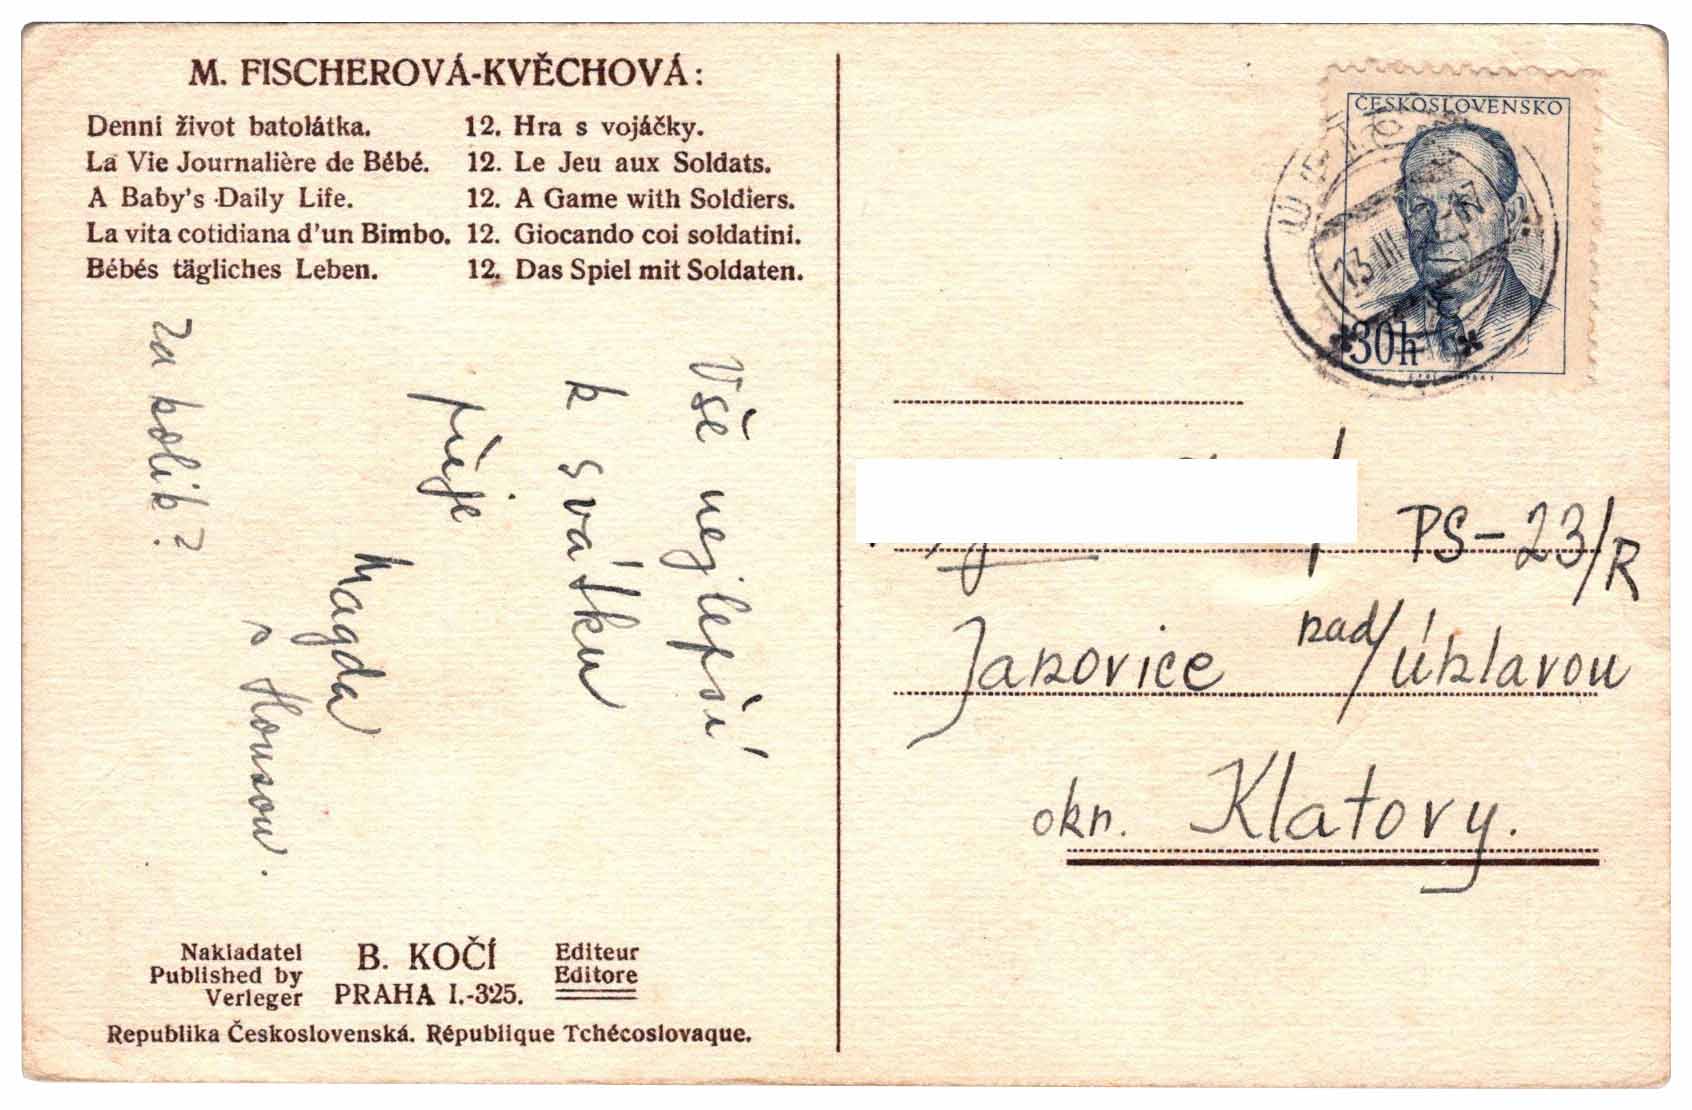 M. FISCHEROVÁ-KVĚCHOVÁ:
Denní život batolátka. 12. Hra s vojáčky.
La Vie Journalière de Bébé. 12. Le Jeu aux Soldats.
A Baby's Daily Life. 12. A Game with Soldiers.
La vita cotidiana d'un Bimbo. 12. Giocando coi soldatini.
Bébés tägliches Leben. 12. Das Spiel mit Soldaten.
Vše nejlepší
k svátku
přeje
Magda
s Honsou.
Za kolik?
Nakladatel B. KOČÍ Editeur
Published by PRAHA I.-325. Editore
Verleger
Republika Československá. République Tchécoslovaque.
ČESKOSLOVENSKO
30h
23.III
PS-23/R
Janovice nad/Úhlavou
okr. Klatovy.